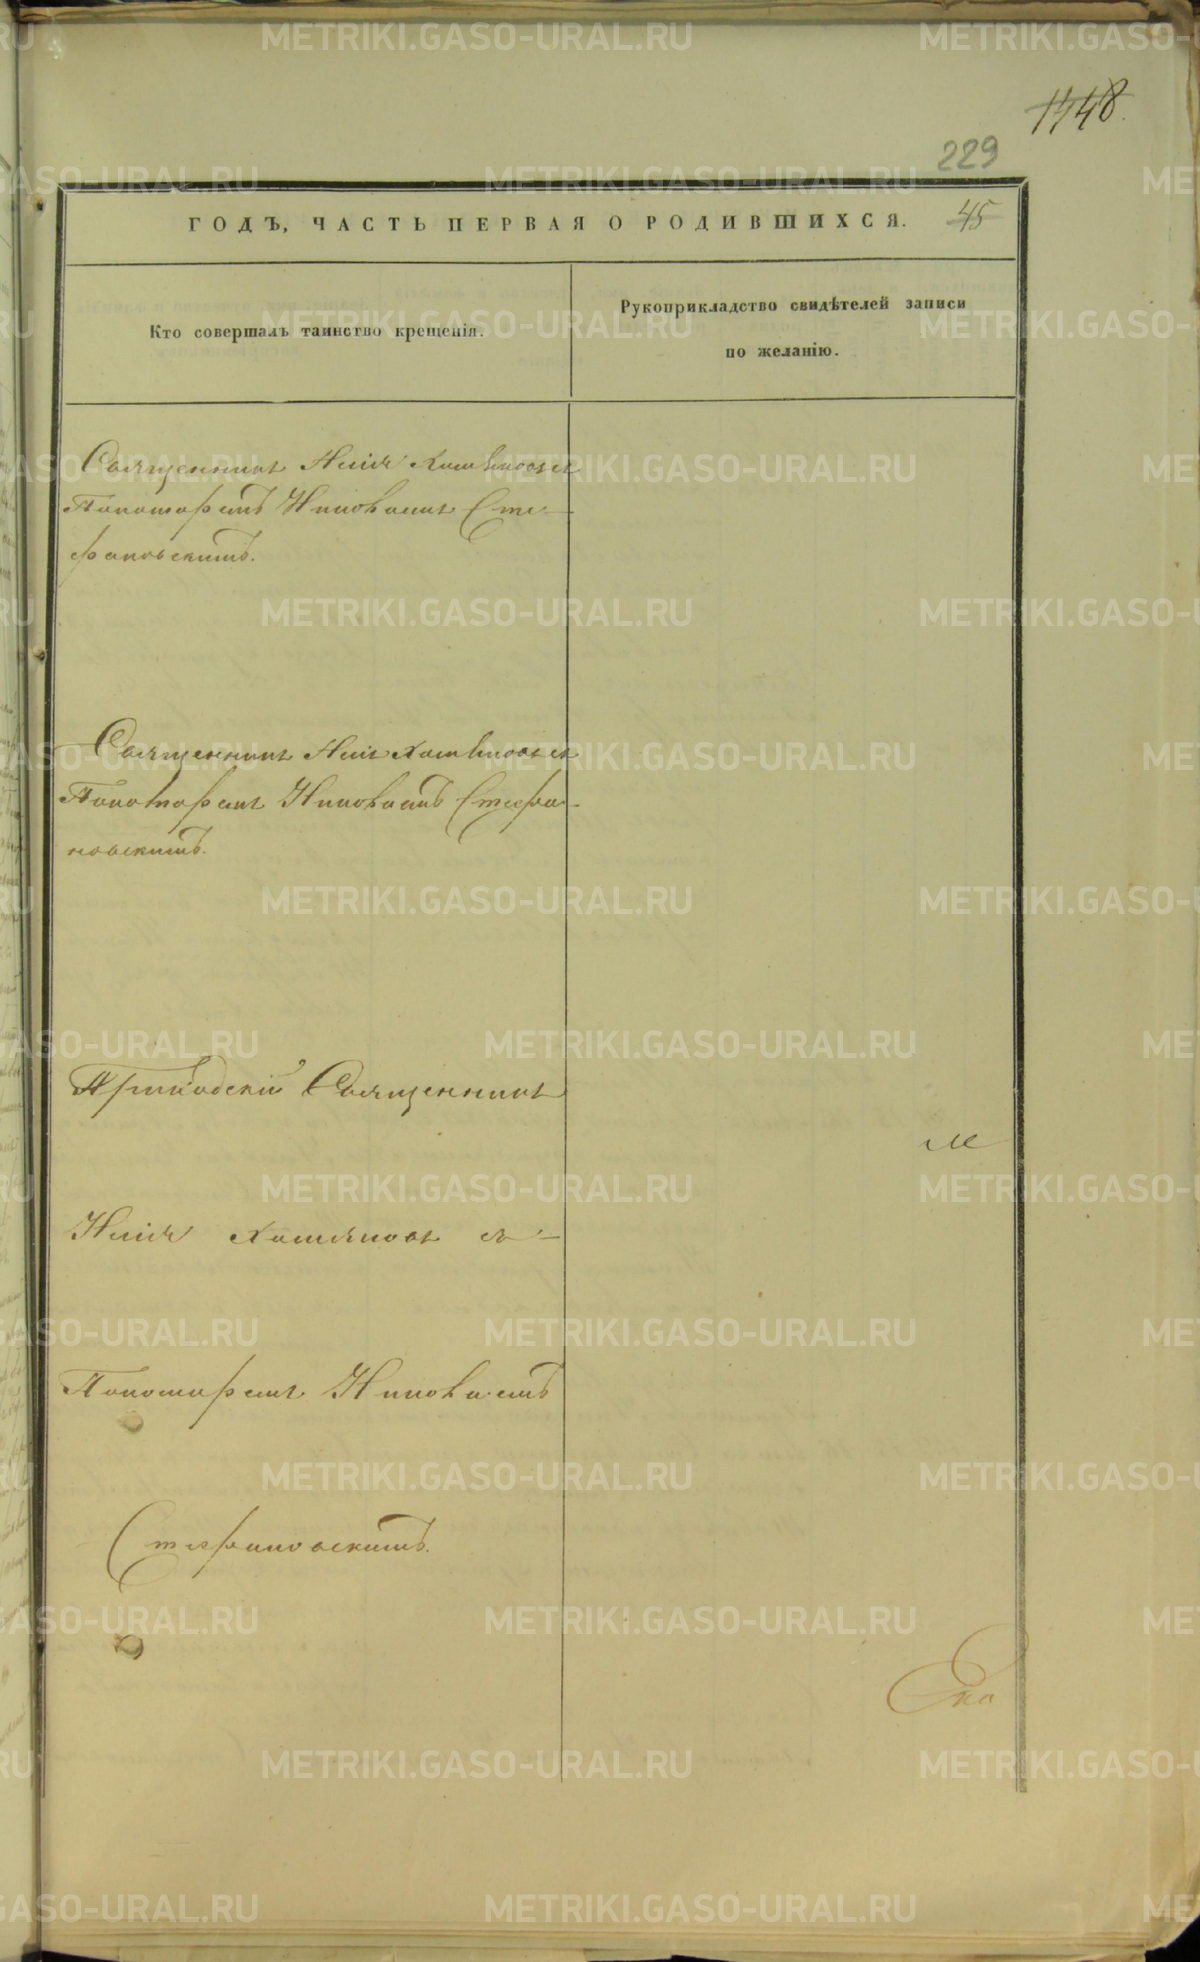 1448.
229
ГОДЪ, ЧАСТЬ ПЕРВАЯ О РОДИВШИХСЯ. 45
Кто совершалъ таинство крещенія.
Рукоприкладство свидѣтелей записи
по желанію.
Священникъ Илія
Пономаремъ Николаемъ Сте-
фановскимъ.
Священникъ Илія
Пономаремъ Николаемъ Стефа-
новскимъ.
Приходскій Священникъ
Илія съ
Пономаремъ Николаемъ
Стефановскимъ.
METRIKI.GASO-URAL.RU